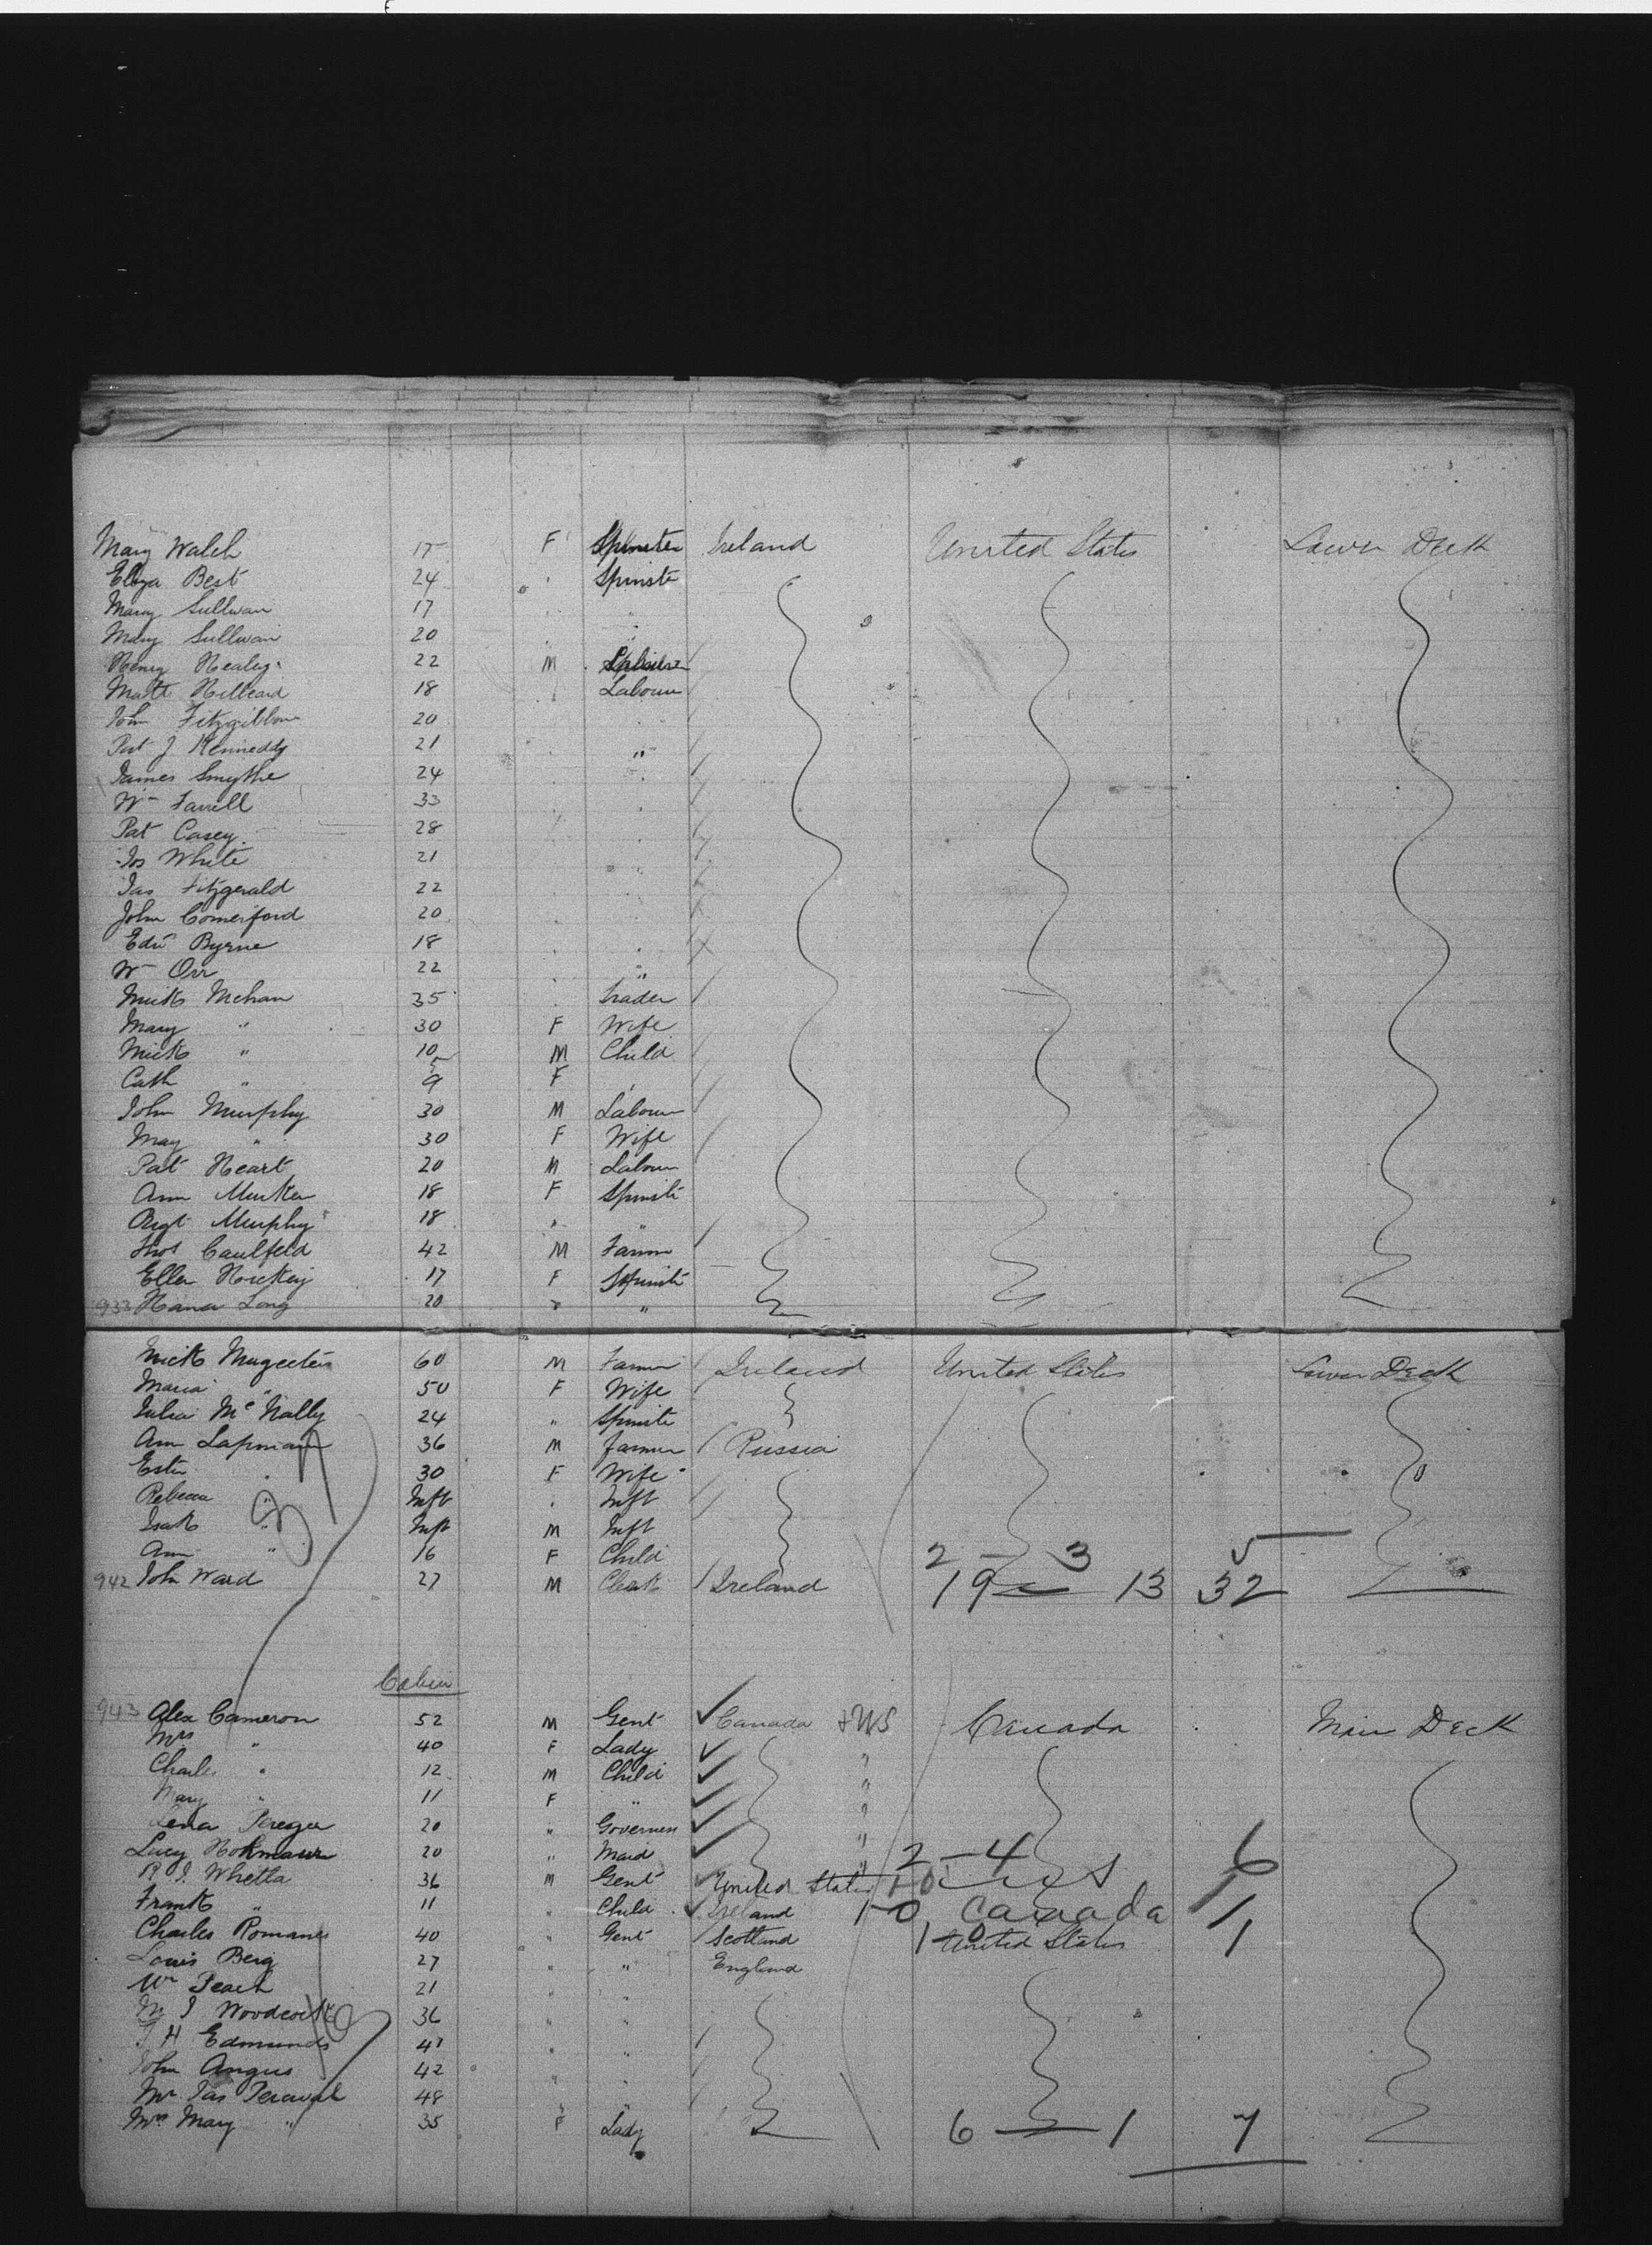 Mary Walsh 17 F Spinster Ireland United States Lower Deck
Eliza Best 24 " Spinstr
Mary Sullivan 17
Mary Sullivan 20 "
Henry Healey 22 M
Matt Hilleard 18 Labourer
John Fitzgibbon 20
Pat J Kennedy 21 "
James Smythe 24 "
Wm Farrell 33 "
Pat Casey 28 "
Jos White 21 "
Jas Fitzgerald 22 "
John Comerford 20
Edwd Byrne 18 "
Wm Orr 22 "
Mick Mehan 35 Trader
Mary " 30 F Wife
Mick " 10 M Child
Cath " 9 F "
John Murphy 30 M Labour
May " 30 F Wife
Pat Heart 20 M Labour
Ann 18 F Spinstr
Brgt Murphy 18 " "
Thos Caulfeld 42 M Farmr
Ellen Hickey 17 F Spinstr
933 Hana Long 20 " "
Mick 60 M Farmer Ireland United States Lower Deck
Maria " 50 F Wife
Julia Mc Nally 24 " Spinstr
Am Lapmann 36 M farmer Russia
Ester " 30 F Wife
Rebecca " Inft " Inft
Isak " Inft M Inft
Ann " 16 F Child 2 - 3 5
942 John Ward 27 M Clerk Ireland 19 - 13 32
Cabin
943 Alex Cameron 52 M Gent Canada + US Canada Main Deck
Mrs " 40 F Lady "
Charles " 12 M Child "
Mary " 11 F " "
Lena 20 " Governess "
Lucy 20 " Maid " 2 - 4 6
R J Whitla 36 M Gent United States 1 0 1
Frank " 11 " Child Ireland 1 0 Canada 1
Charles Romanes 40 " Gent Scotland 1 0 United States 1
Louis Berg 27 " " England
Wm Peach 21 " "
J Woodcock 36 " "
H Edmunds 47 " "
John Angus 42 " "
Mr Jas Peraval 48 " "
Mrs Mary " 35 F Lady 6 - 1 7